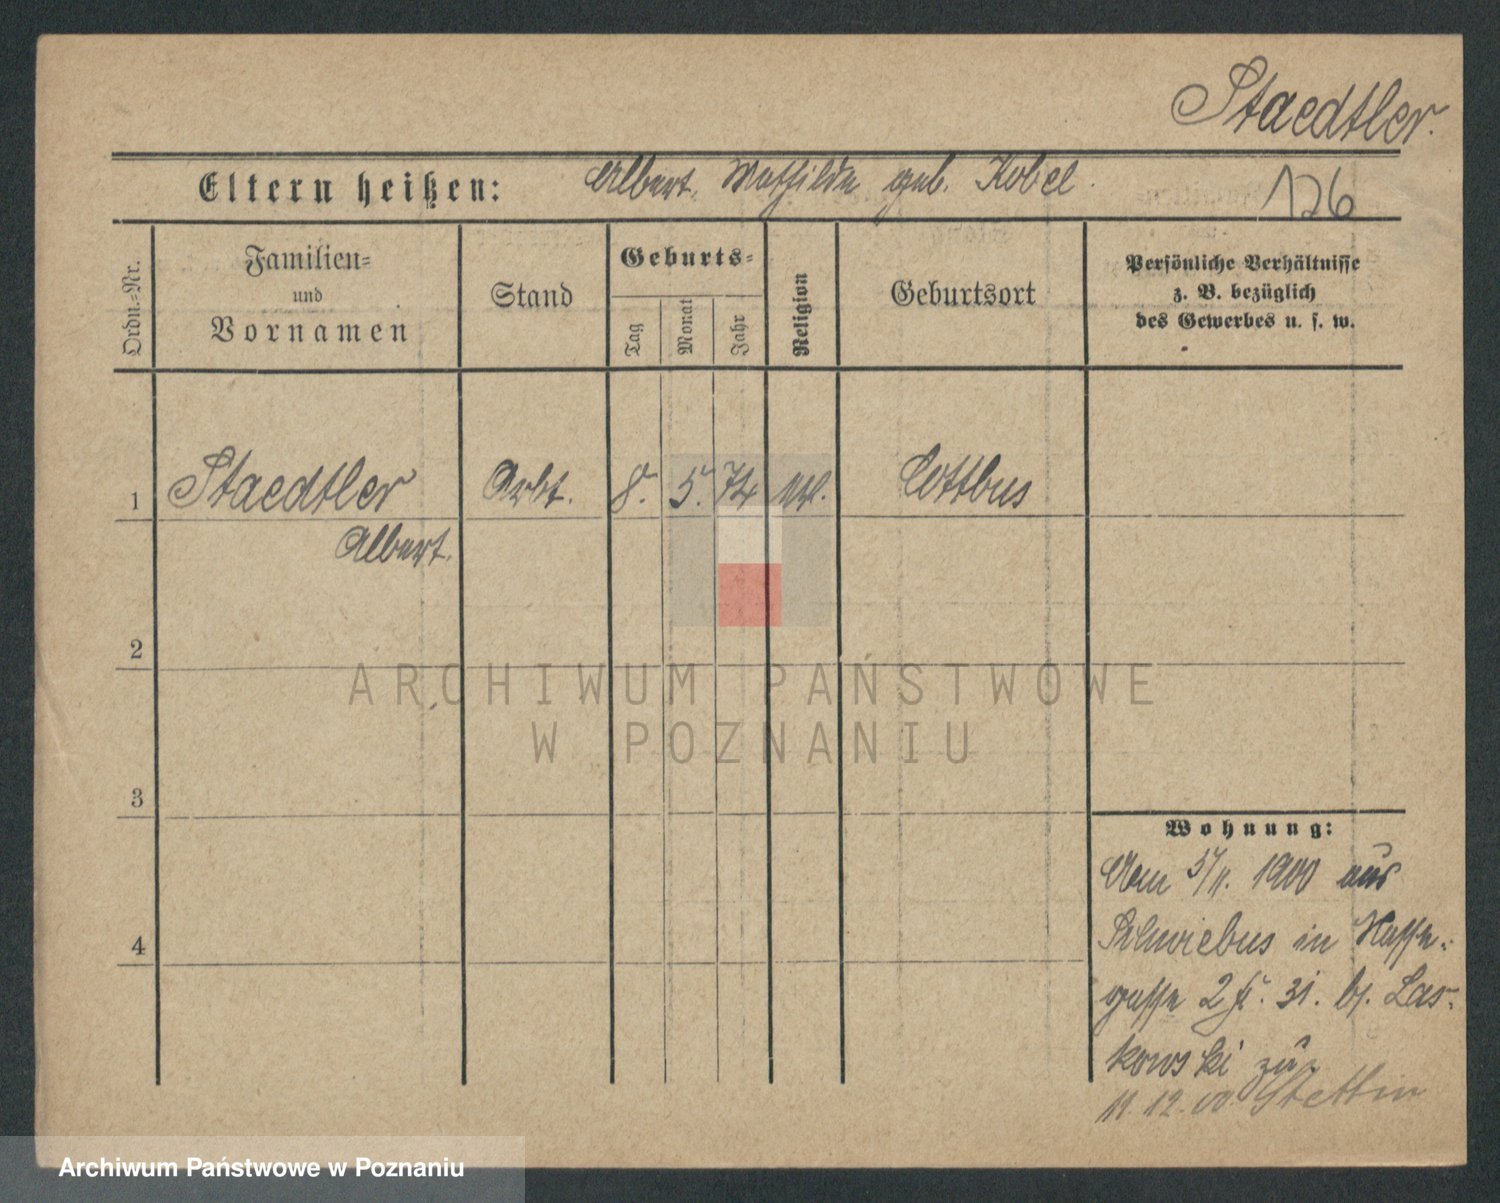 Staedtler.
Eltern heißen: Albert, Mathilde geb. Kobel.
126
Ordn.=Nr.
Familien=
und
Vornamen
Stand
Geburts=
Tag
Monat
Jahr
Religion
Geburtsort
Persönliche Verhältnisse
z. B. bezüglich
des Gewerbes u. s. w.
1 Staedtler Arbt. 8. 5. 74 Cottbus
Albert.
2
3
4
Wohnung:
Vom 1900 aus
Schwiebus in Wasser=
gasse 2 31. bj. Las=
kowski zu
11.12.00 Stettin
ARCHIWUM PAŃSTWOWE
W POZNANIU
Archiwum Państwowe w Poznaniu